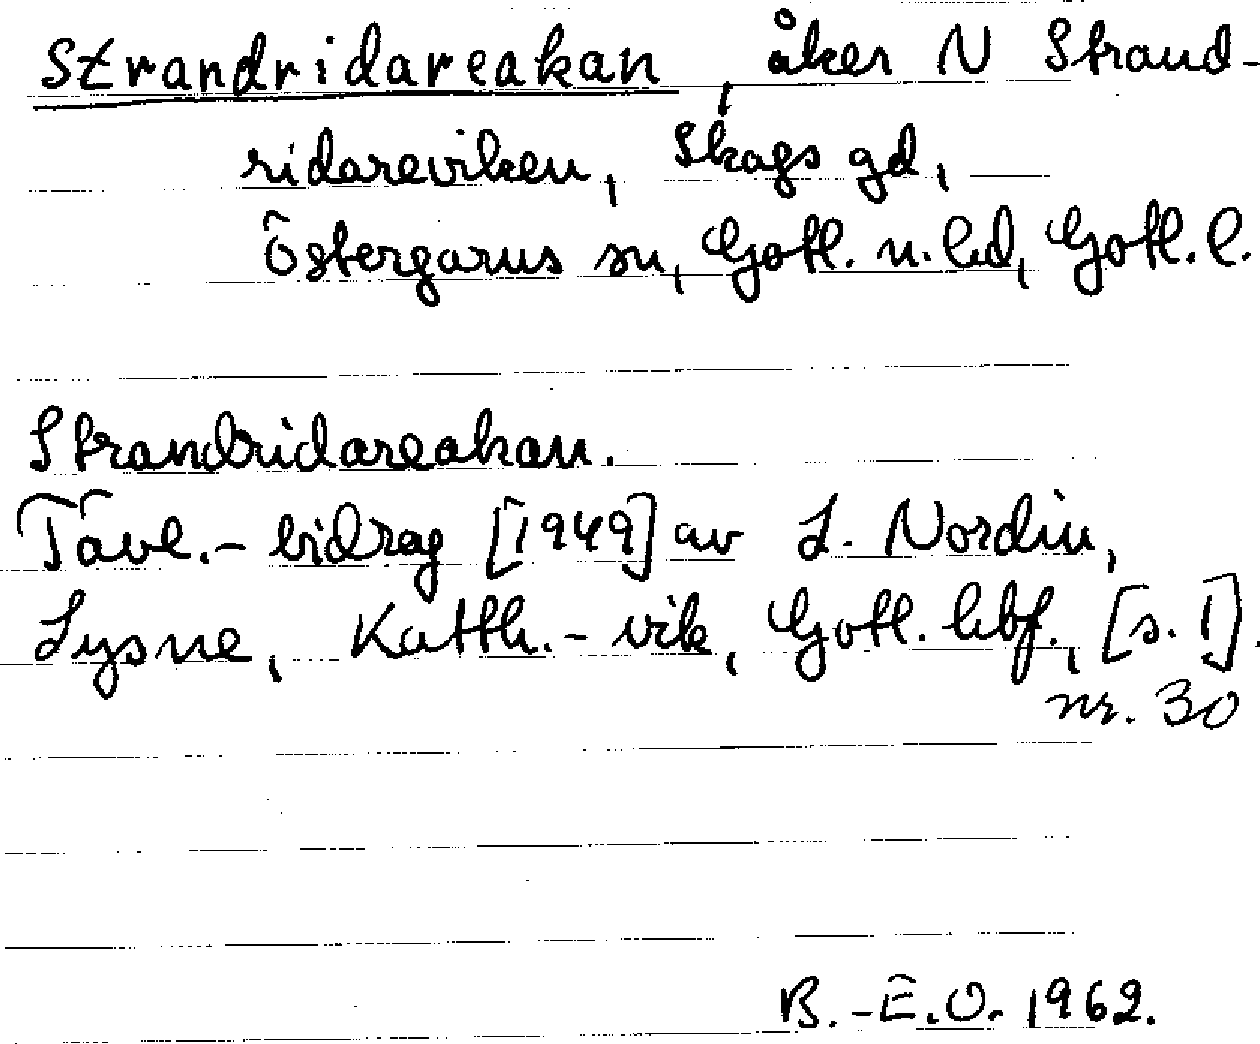 Strandridareakan, åker N Strand-
ridareviken, Skags gd,
Östergarns sn, Gotl. n. hd, Gotl. l.
Strandridareakan.
Tävl.-bidrag [1949] av L. Nordin,
Lysne, Katth.-vik, Gotl. hbf., [s. 1].
nr. 30
B.-E.O. 1962.